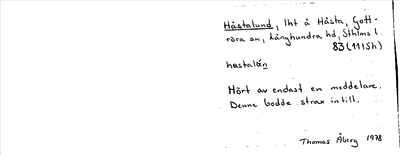 Håstalund, lht å Håsta, Gott-
röra sn, Långhundra hd, Sthlms l.
83 (11 I 5 h)
hastalún
Hört av endast en meddelare.
Denne bodde strax intill.
Thomas Åberg 1978